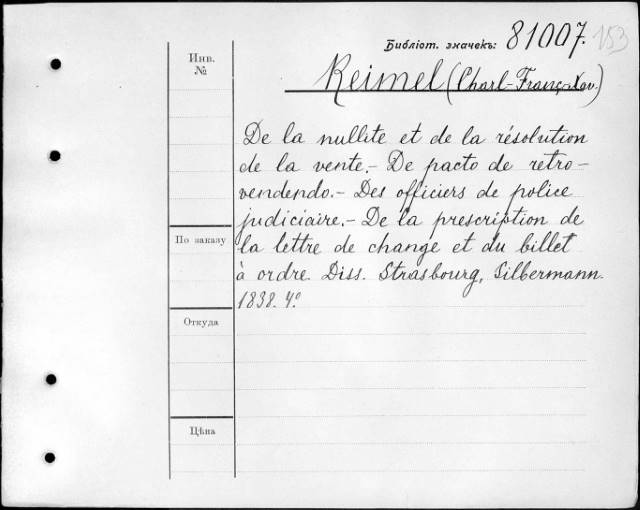 Библіот. значекъ: 81007. 153
Инв. №
Reimel (Charl-Franç-Xav.)
De la nullite et de la résolution
de la vente.- De pacto de retro-
vendendo.- Des officiers de police
judiciaire.- De la prescription de
По заказу
la lettre de change et du billet
à ordre. Diss. Strasbourg, Silbermann.
1838. 4º
Откуда
Цѣна